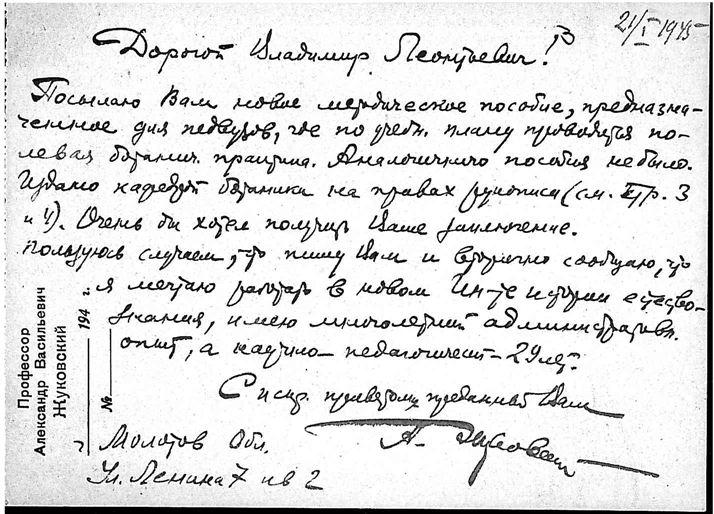 21/I 1945
Дорогой Владимир Леонтьевич!
Посылаю Вам новое методическое пособие, предназна-
ченное для педвузов, где по учебн. плану проводится по-
левая ботанич. практика. Аналогичного пособия не было.
Издано кафедрой ботаники на правах рукописи (см. стр. 3
и 4). Очень бы хотел получить Ваше заключение.
Пользуюсь случаем, что пишу Вам и вторично сообщаю, что
я мечтаю работать в новом Ин-те истории естество-
знания, имею многолетний административн.
опыт, а научно-педагогическ – 29 лет.
С искр. приветом преданный Вам
А. Жуковский
г. Молотов Обл.
Ул. Ленина 7 кв 2
Профессор
Александр Васильевич
Жуковский
194 г.
№